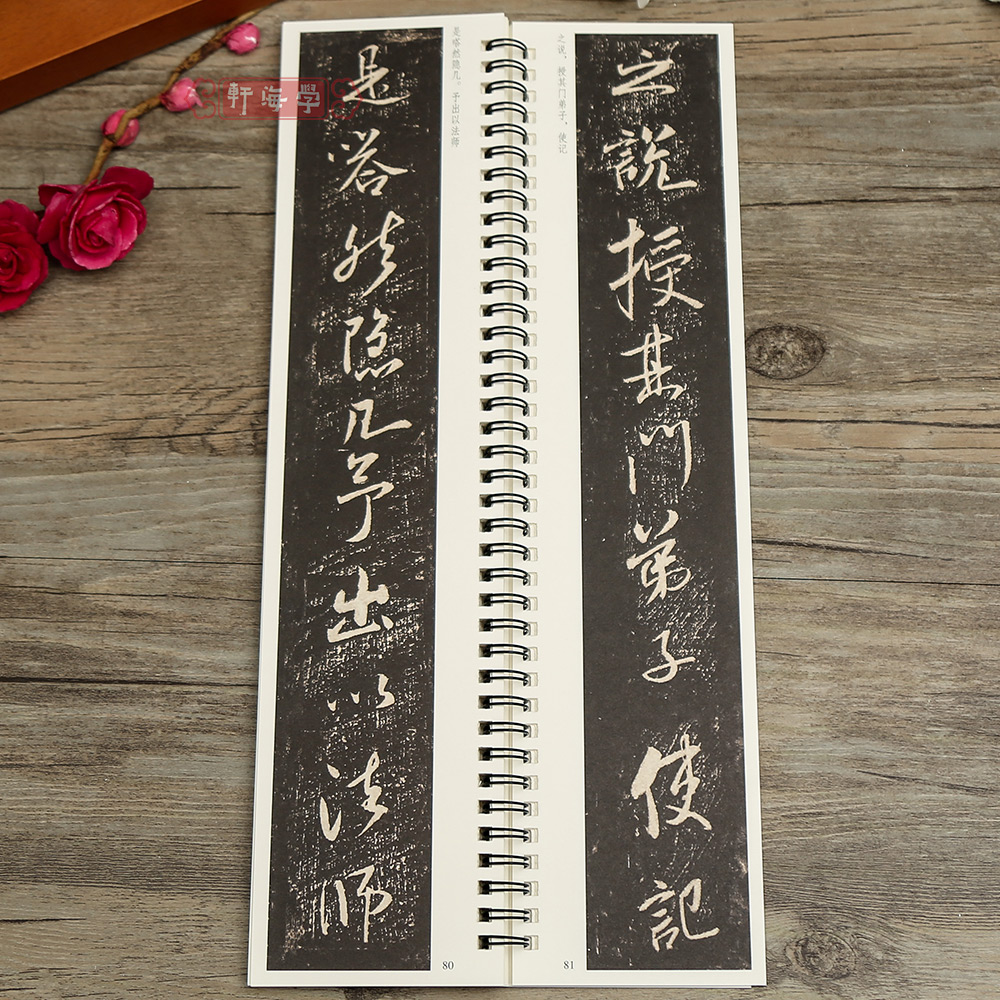 學海軒
是嗒然隱几予出以法師
是嗒然隐几。予出以法师
80
之说，授其门弟子，使记
之說授其門弟子使記
81